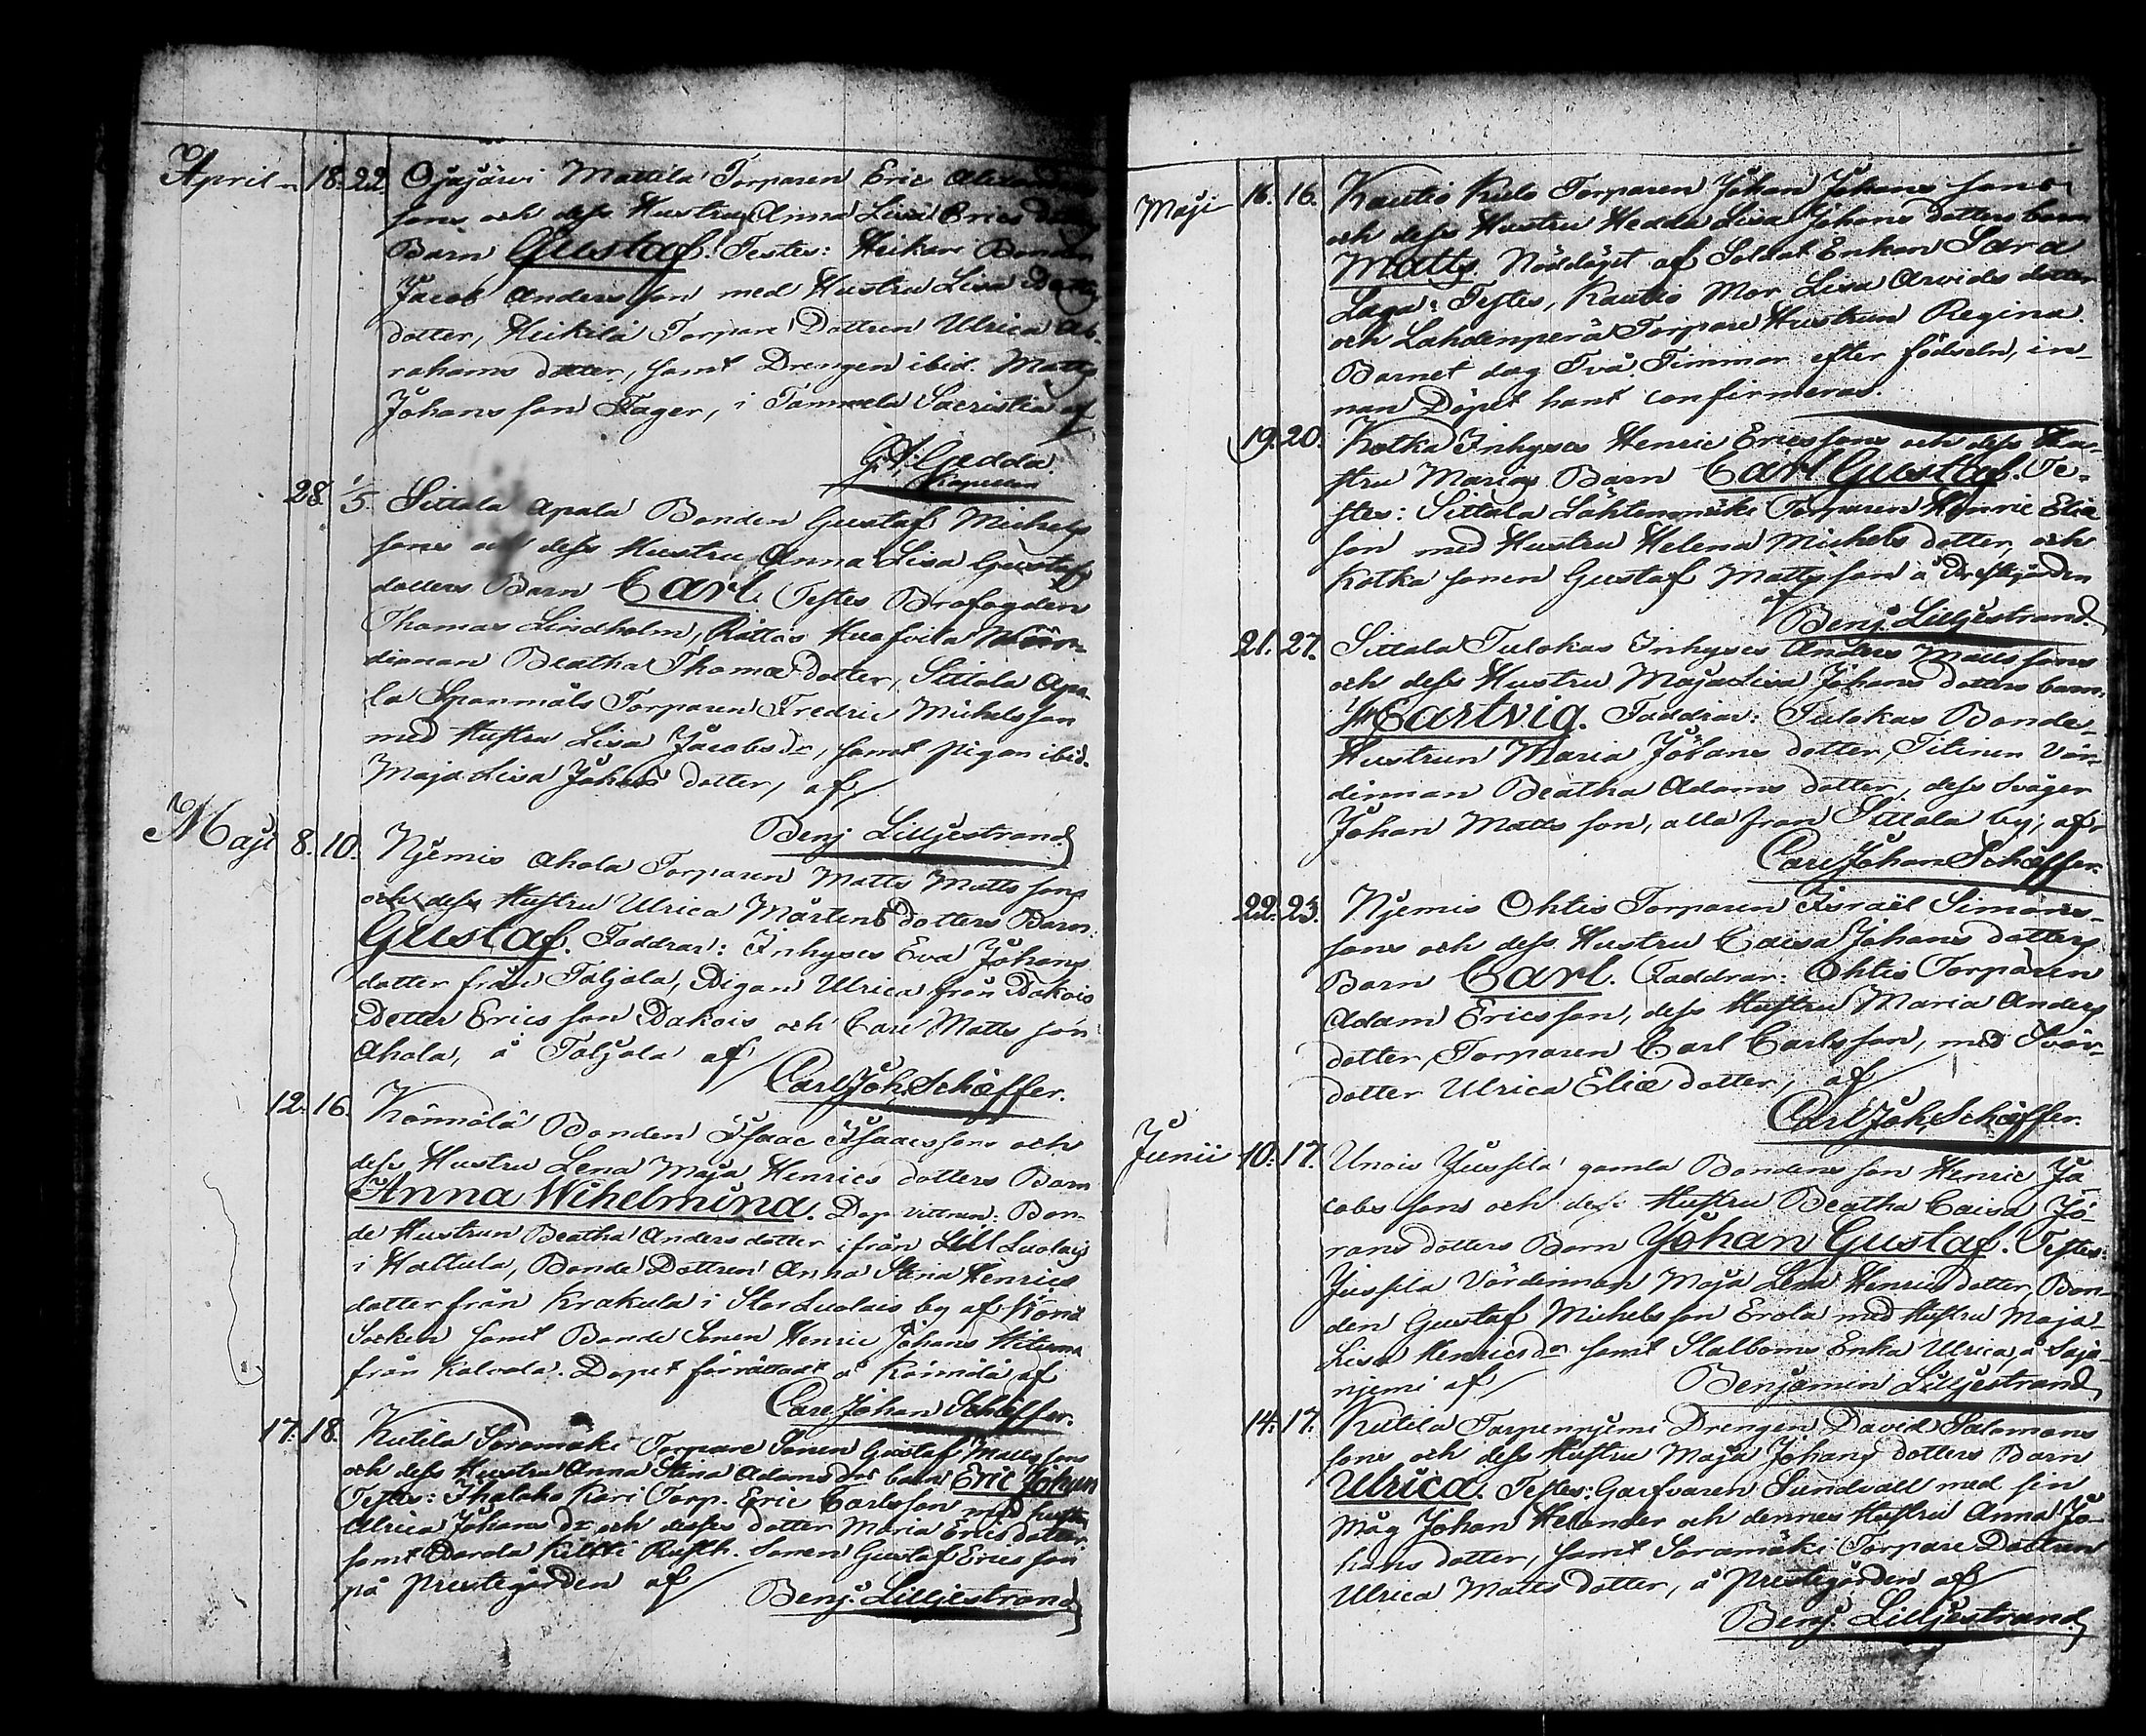 April 18. 22. Ojajärvi Mattila Torparen Eric
sons och dess Hustru Anna Lisa Erics
Barn Gustaf. Testes: Heikari Bonden
Jacob Andersson med Hustru Lisa
dotter, Heikilä Torpare Dottren Ulrica Ab-
rahams dotter, samt Drengen ibid. Matts
Johansson Fager, i Tammela Sacristia af
Gadda.
28. 1/5. Sittala Apala Bonden Gustaf Michels
sons och dess Hustru Anna Lisa Gustafs
dotters Barn Carl. Testes Brofogden
Thomas Lindholm, Rättäs
dinnan Beatha Thomæ dotter, Sittala Apa-
la Spanmåls Torparen Fredric Michelsson
med Hustru Lisa Jacobs dr, samt pigan ibid.
Maja Lisa Johans dotter, af
Benj Lilljestrand
Maji 8. 10. Njemis Ahola Torparen Matts Matts sons
och dess Hustru Ulrica Mårtens dotters Barn:
Gustaf. Faddrar: Inhyses Eva Johans
dotter från Taljala, Pigan Ulrica från Dakois
Petter Ericsson Dakois och Carl Mattsson
Ahola, å Taljala af
Carl Joh. Schæffer.
12. 16. Könnölä Bonden Isaac Isaacssons och
dess Hustru Lena Maja Henrics dotters Barn
Anna Wihelmina. Dop vittnen: Bon-
de Hustrun Beatha Anders dotter ifrån Lill Luolais
i Hattula, Bonde Dottren Anna Stina Henrics
dotter från Krakula i Stor Luolais by af
Socken samt Bonde Sonen Henric Johans
från Kalvola. Dopet förrättadt å Könnölä af
Carl Johan Schæffer.
17. 18. Kutila Soramäki Torpare Sonen Gustaf Mattssons
och dess Hustru Anna Stina Adams drs barn Eric Johan
Testes: Ihalaho Kari Torp. Eric Carlsson med hustru
Ulrica Johans dr och desses dotter Maria Erics dotter
samt Kiltti Rusth. Sonen Gustaf Ericsson
på Prestegården af
Benj. Lilljestrand
Maji 16. 16. Kautio Kulo Torparen Johan Johans sons
och dess Hustru Hedda Lisa Johans dotters barn
Matts. Nöddöpt af Soldat Enkan Sara
Laga: Testes, Kautio Mor Lisa Arvids dotter
och Lahdenperä Torpare Hustrun Regina.
Barnet dog Två Timmar efter födseln, in-
nan Döpet hant confirmeras.
19. 20. Kotka Inhyses Henric Ericssons och dess Hu-
stru Marias Barn Carl Gustaf. Te-
stes: Sittala Lähtenmäki Torparen Henric Eliæ
son med Hustru Helena Michels dotter, och
Kotka sonen Gustaf Mattsson å Prestgården
af Benj. Lilljestrand.
21. 27. Sittala Tulokas Inhyses Anders Matts sons
och dess Hustru Maja Lisa Johans dotters barn
Hartvig. Faddrar: Tulokas Bonde
Hustrun Maria Johans dotter, Titinen Vär-
dinnan Beatha Adams dotter, dess svåger
Johan Mattsson, alla från Sittala by, af
Carl Johan Schæffer.
22. 23. Njemis Ohtis Torparen Israël Simons-
sons och dess Hustru Caisa Johans dotters
Barn Carl. Faddrar: Ohtis Torparen
Adam Ericsson, dess Hustru Maria Anders
dotter, Torparen Carl Carlsson, med Svär-
dotter Ulrica Eliæ dotter, af
Carl Joh. Schæffer.
Junii 10. 17. Unois Jussila gamla Bondens son Henric Ja-
cobs sons och dess Hustru Beatha Caisa Jö-
rans dotters Barn Johan Gustaf. Testes:
Jussila Värdinnan Maja Lena Henrics dotter, Bon-
den Gustaf Michelsson Erola med Hustru Maja
Lisa Henrics dr samt Stalboms Enka Ulrica, å Säjä-
njemi af Benjamin Lilljestrand
14. 17. Kutila Tarpennjemi Drengen David Salomons
sons och dess Hustru Maja Johans dotters Barn
Ulrica. Testes: Garfvaren Sundvall med sin
Måg Johan Helander och dennes Hustru Anna Jo-
hans dotter, samt Soramäki Torpare Dottren
Ulrica Matts dotter, å Prestegården af
Benj. Lilljestrand